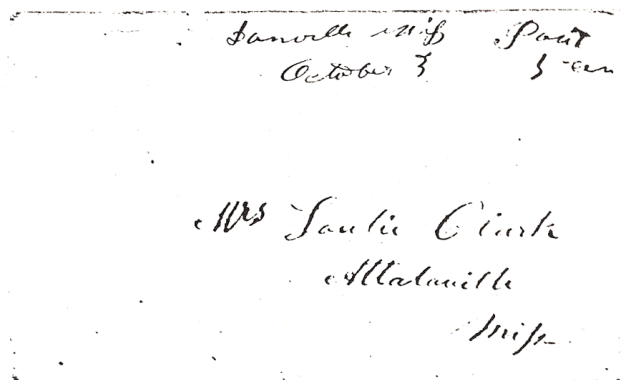 Danville Miss Paid
October 3 5 cen
Mrs Loulie Clark
Attalaville
Miss